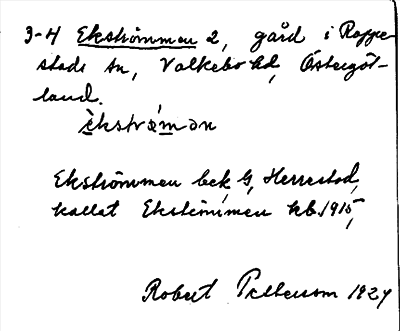 3-4 Ekströmmen 2, gård i Rappe-
stads sn, Valkebo hd, Östergöt-
land.
èkstrømən
Ekströmmen bek G, Herrestad,
kallat Ekströmmen kb. 1915,
Robert Pettersson 1924